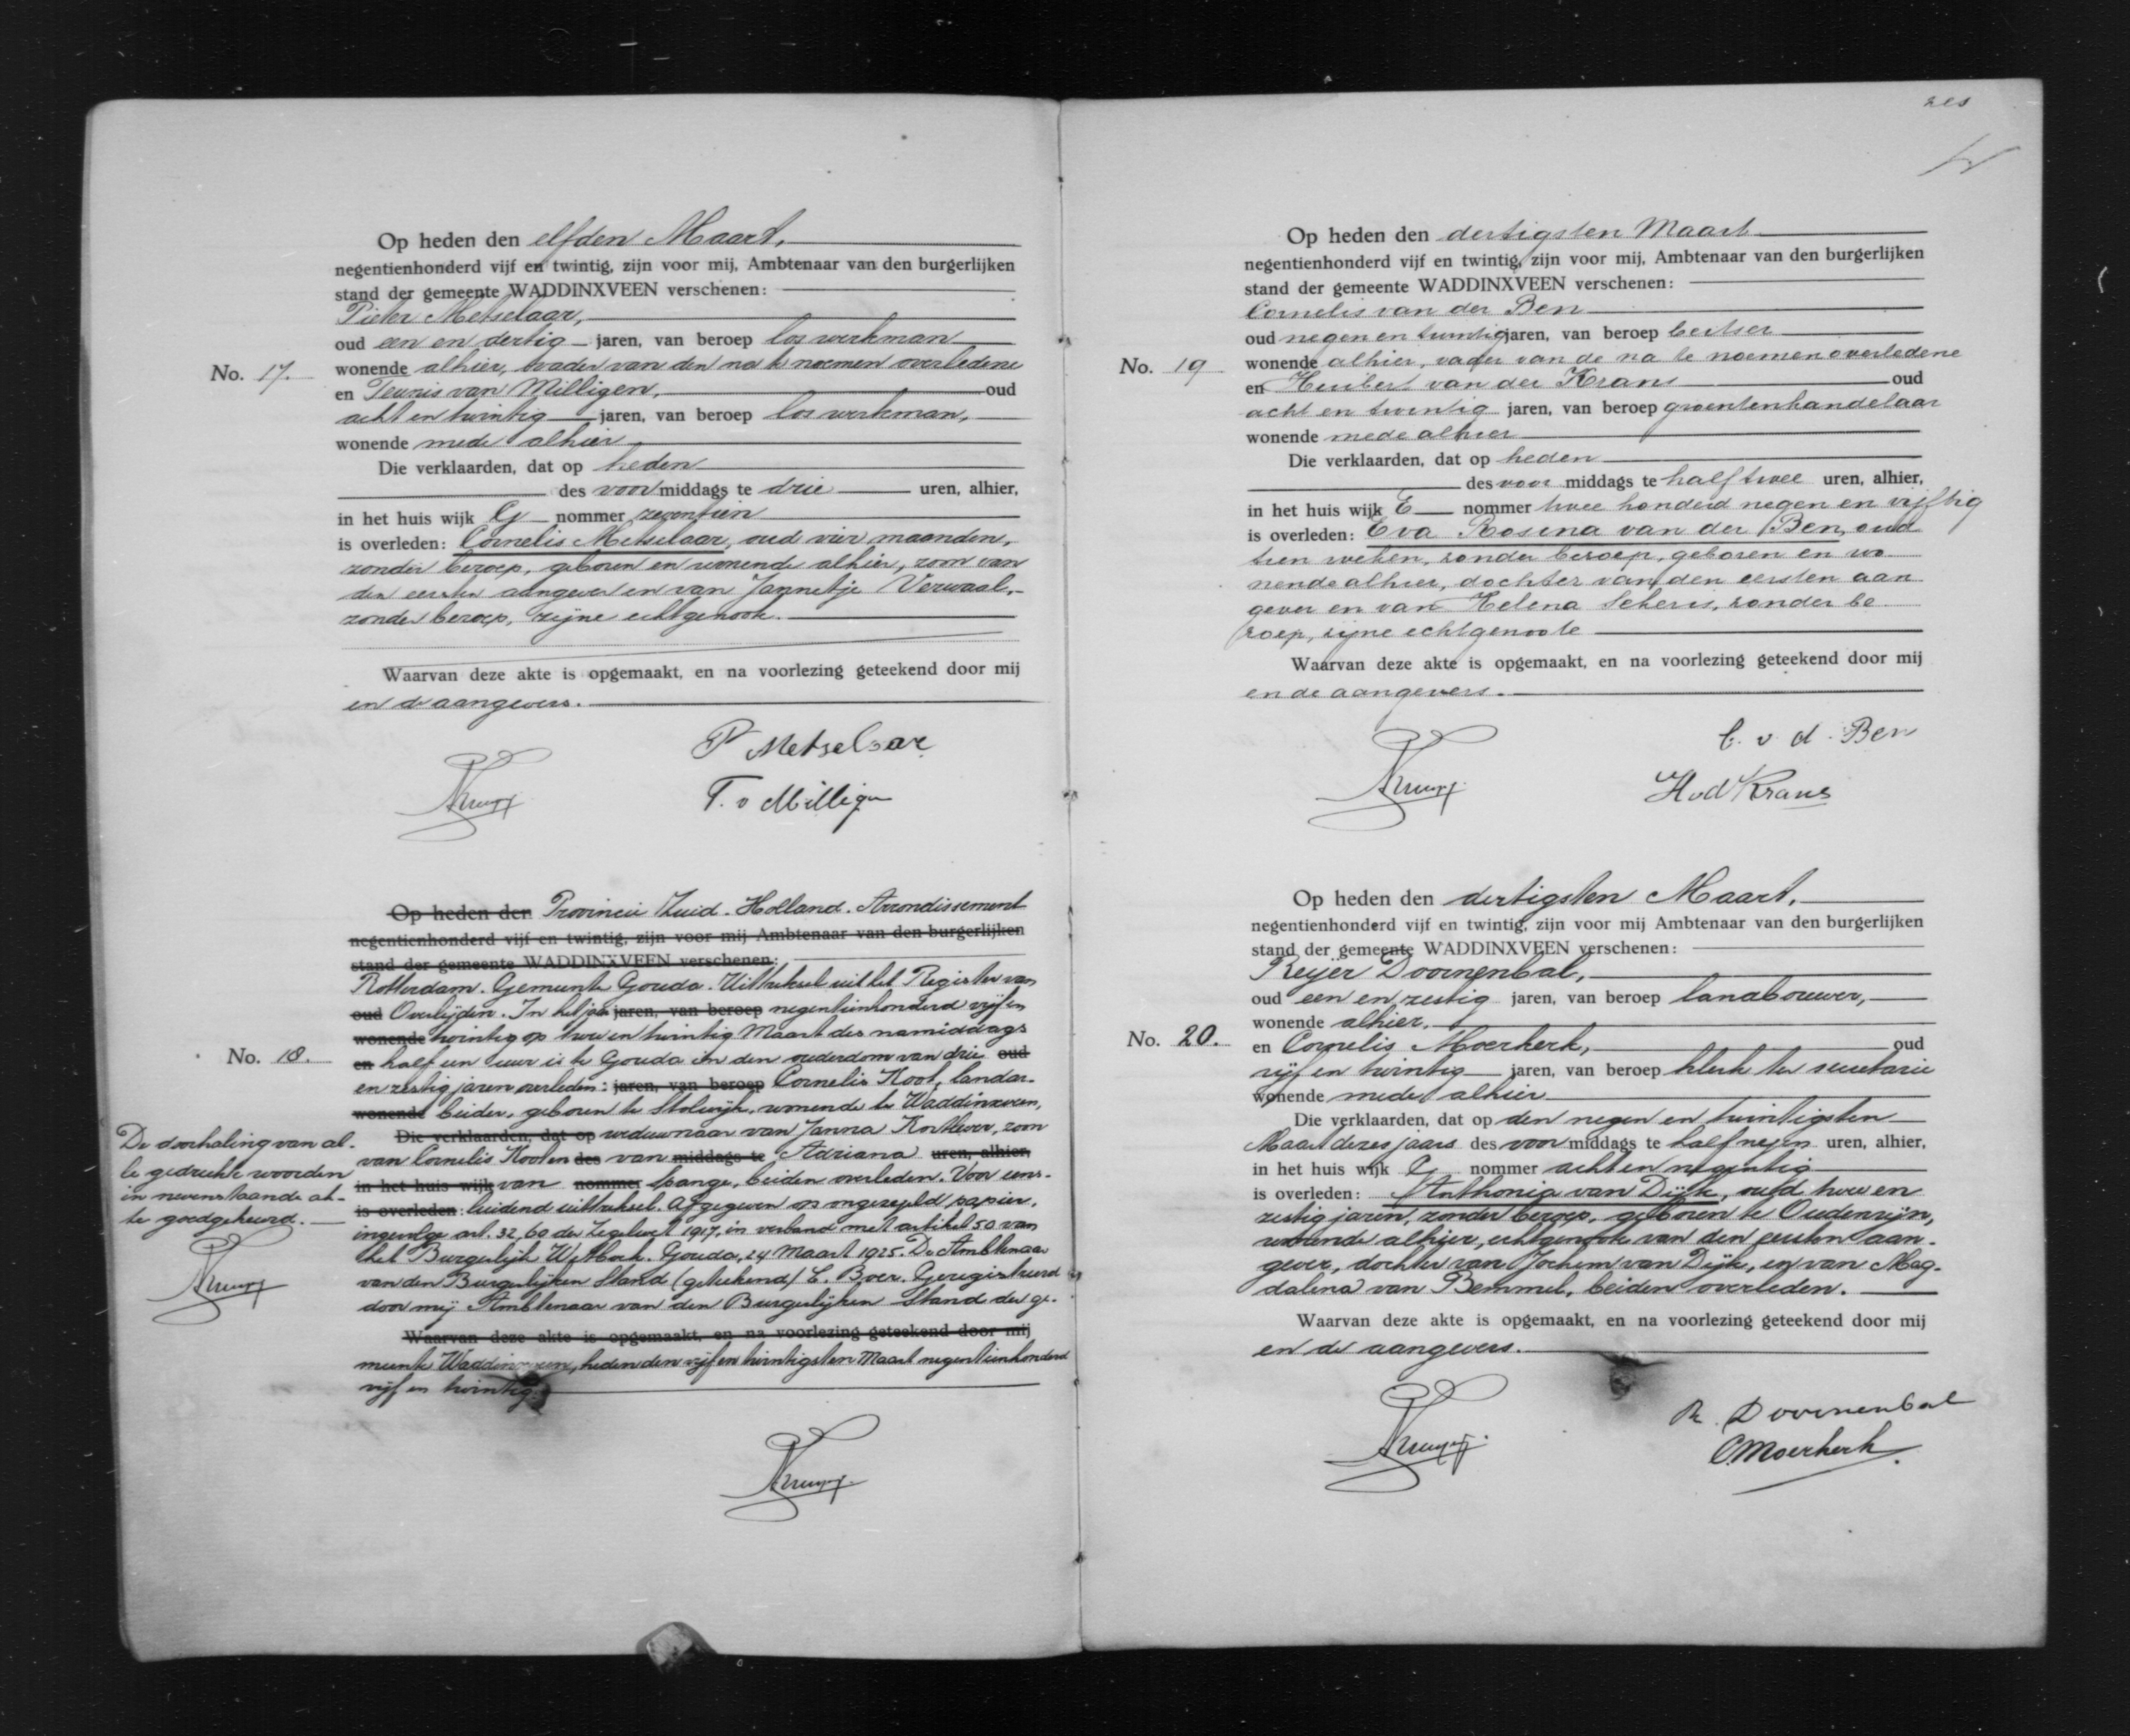 Op heden den elfden Maart,
negentienhonderd vijf en twintig, zijn voor mij, Ambtenaar van den burgerlijken
stand der gemeente WADDINXVEEN verschenen:
Pieter Metselaar,
oud een en dertig jaren, van beroep los werkman
No. 17. wonende alhier, vader van den na te noemen overledene
en Teunis van Milligen, oud
acht en twintig jaren, van beroep los werkman,
wonende mede alhier
Die verklaarden, dat op heden
des voormiddags te drie uren, alhier,
in het huis wijk G nommer zeventien
is overleden: Cornelis Metselaar, oud vier maanden,
zonder beroep, geboren en wonende alhier, zoon van
den eersten aangever en van Jannetje Verwaal,
zonder beroep, zijne echtgenoote.
Waarvan deze akte is opgemaakt, en na voorlezing geteekend door mij
en de aangevers.
P Metselaar
T. v Milligen
Op heden den Provincie Zuid-Holland. Arrondissement
negentienhonderd vijf en twintig, zijn voor mij Ambtenaar van den burgerlijken
stand der gemeente WADDINXVEEN verschenen:
Rotterdam. Gemeente Gouda. Uittreksel uit het Register van
oud Overlijden. In het jaar jaren, van beroep negentienhonderd vijf en
wonende twintig op twee en twintig Maart des namiddags
No. 18. en half een uur is te Gouda in den ouderdom van drie oud
en zestig jaren overleden: jaren, van beroep Cornelis Koot, landar-
wonende beider, geboren te Stolwijk, wonende te Waddinxveen,
Die verklaarden, dat op weduwnaar van Janna Kortlever, zoon
van Cornelis Koot en des van middags te Adriana uren, alhier,
in het huis wijk van nommer Lange, beiden overleden. Voor eens-
is overleden: luidend uittreksel. Afgegeven op ongezegeld papier,
ingevolge art. 32, 60 der Zegelwet 1917, in verband met artikel 50 van
het Burgerlijk Wetboek. Gouda, 24 Maart 1925. De Ambtenaar
van den Burgerlijken Stand (geteekend) C. Boer. Geregistreerd
door mij Ambtenaar van den Burgerlijken Stand der ge-
Waarvan deze akte is opgemaakt, en na voorlezing geteekend door mij
meente Waddinxveen, heden den vijf en twintigsten Maart negentienhonderd
vijf en twintig.
De doorhaling van al-
le gedrukte woorden
in nevenstaande ak-
te goedgekeurd.
zes
Op heden den dertigsten Maart
negentienhonderd vijf en twintig, zijn voor mij, Ambtenaar van den burgerlijken
stand der gemeente WADDINXVEEN verschenen:
Cornelis van der Ben
oud negen en twintig jaren, van beroep beitser
No. 19 wonende alhier, vader van de na te noemen overledene
en Huibert van der Krans oud
acht en twintig jaren, van beroep groentenhandelaar
wonende mede alhier
Die verklaarden, dat op heden
des voor middags te half twee uren, alhier,
in het huis wijk E nommer twee honderd negen en vijftig
is overleden: Eva Rosina van der Ben, oud
tien weken, zonder beroep, geboren en wo-
nende alhier, dochter van den eersten aan
gever en van Helena Scheris, zonder be
roep, zijne echtgenoote
Waarvan deze akte is opgemaakt, en na voorlezing geteekend door mij
en de aangevers.
C. v. d. Ben
H v d Krans
Op heden den dertigsten Maart,
negentienhonderd vijf en twintig, zijn voor mij Ambtenaar van den burgerlijken
stand der gemeente WADDINXVEEN verschenen:
Reijer Doornenbal,
oud een en zestig jaren, van beroep landbouwer,
wonende alhier,
No. 20. en Cornelis Moerkerk, oud
vijf en twintig jaren, van beroep klerk ter secretarie
wonende mede alhier
Die verklaarden, dat op den negen en twintigsten
Maart dezes jaars des voormiddags te half negen uren, alhier,
in het huis wijk G nommer acht en negentig
is overleden: Anthonia van Dijk, oud twee en
zestig jaren, zonder beroep, geboren te Oudenrijn,
wonende alhier, echtgenoote van den eersten aan-
gever, dochter van Jochem van Dijk, en van Mag-
dalena van Bemmel, beiden overleden.
Waarvan deze akte is opgemaakt, en na voorlezing geteekend door mij
en de aangevers.
R. Doornenbal
C Moerkerk